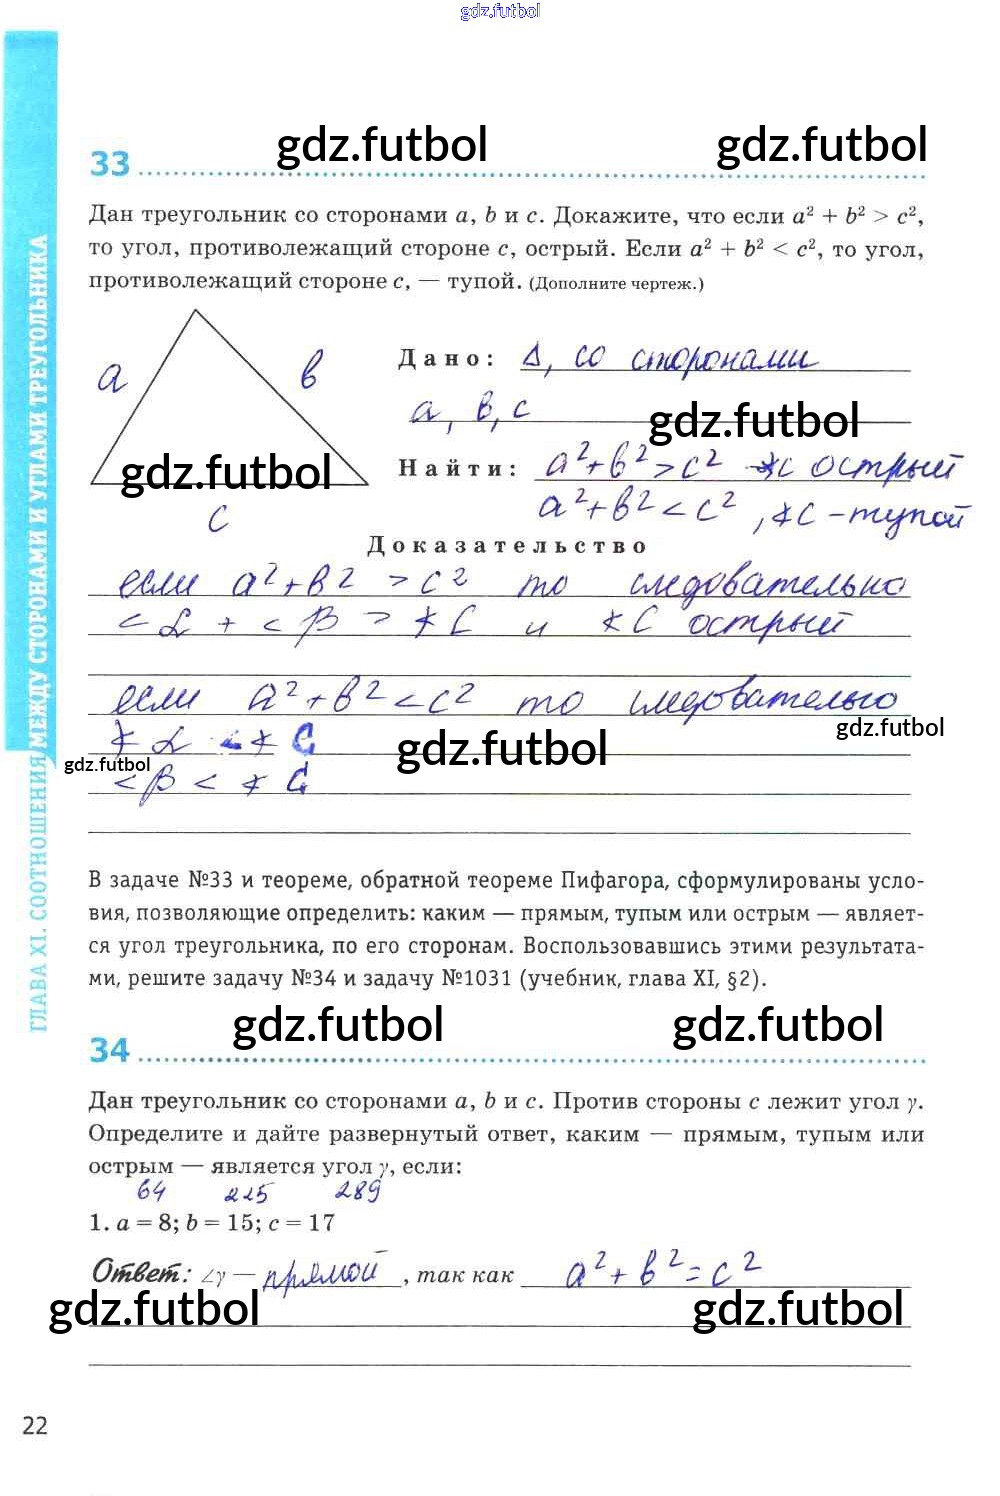 gdz.futbol
33
gdz.futbol
gdz.futbol
Дан треугольник со сторонами a, b и c. Докажите, что если a² + b² > c²,
то угол, противолежащий стороне c, острый. Если a² + b² < c², то угол,
противолежащий стороне c, — тупой. (Дополните чертеж.)
a
в
c
gdz.futbol
Дано: Δ, со сторонами
a, в, c
gdz.futbol
Найти: a²+в²>c² ∢C острый
a²+в²<c², ∢C-тупой
Доказательство
если a²+в² >c² то следовательно
<α + <β > ∢C и ∢C острый
если a²+в²<c² то следовательо
gdz.futbol
∢α < ∢C
gdz.futbol
gdz.futbol
<β < ∢C
В задаче №33 и теореме, обратной теореме Пифагора, сформулированы усло-
вия, позволяющие определить: каким — прямым, тупым или острым — являет-
ся угол треугольника, по его сторонам. Воспользовавшись этими результата-
ми, решите задачу №34 и задачу №1031 (учебник, глава XI, §2).
gdz.futbol
gdz.futbol
34
Дан треугольник со сторонами a, b и c. Против стороны c лежит угол γ.
Определите и дайте развернутый ответ, каким — прямым, тупым или
острым — является угол γ, если:
64 225 289
1. a = 8; b = 15; c = 17
Ответ: ∠γ — прямой, так как a²+в²=c²
gdz.futbol
gdz.futbol
22
ГЛАВА XI. СООТНОШЕНИЯ МЕЖДУ СТОРОНАМИ И УГЛАМИ ТРЕУГОЛЬНИКА